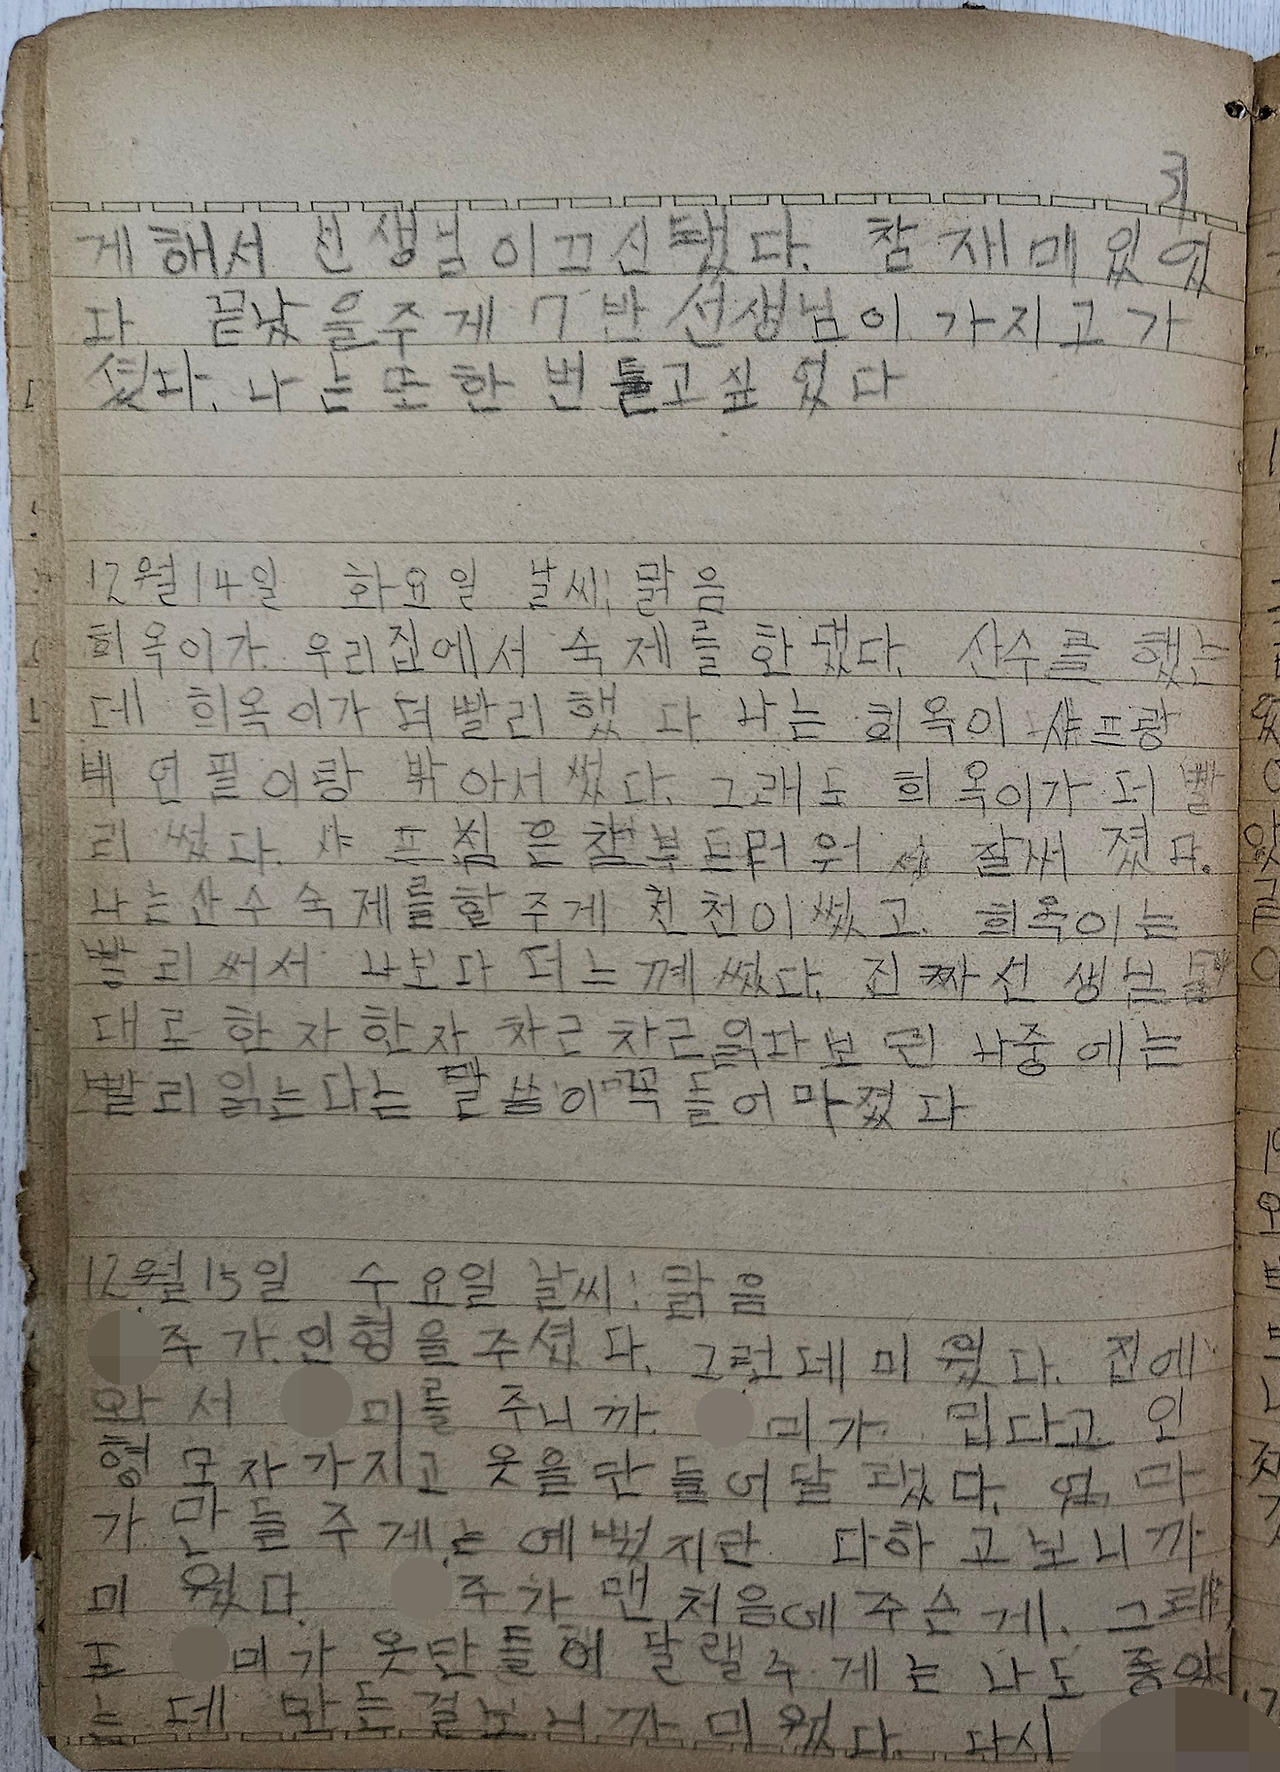 게해서 선생님이끄신댔다. 참 재매있었
다 끝났을주게 7반 선생님이 가지고가
셨다. 나는또한번 틀고싶었다
12월14일 화요일 날씨: 맑음
희옥이가 우리집에서 숙제를 한댔다. 산수를 했는
데 희옥이가 더빨리했다 나는 희옥이 샤프랑
내 연필이랑 밖아서썼다. 그래도 희옥이가 더 빨
리 썼다. 샤프심은 참부드러워서 잘써졌다.
나는산수숙제를할주게 천천이썼고. 희옥이는
빨리써서 나보다더느께썼다. 진짜선생님말
대로 한자한자 차근차근읽다보면 나중에는
빨리읽는다는 말씀이꼭들어마졌다
12월15일 수요일 날씨: 맑음
주가.인형을주셨다. 그런데미웠다. 집에
와서 미를 주니까. 미가 밉다고 인
형모자가지고 옷을만들어달랬다. 엄마
가 만들주게는예뻤지만 다하고보니까
미웠다. 주가맨처음에주슨게. 그래
도 미가 옷만들어달랠주게는 나도좋았
는데 만든걸보니까미웠다. 다시